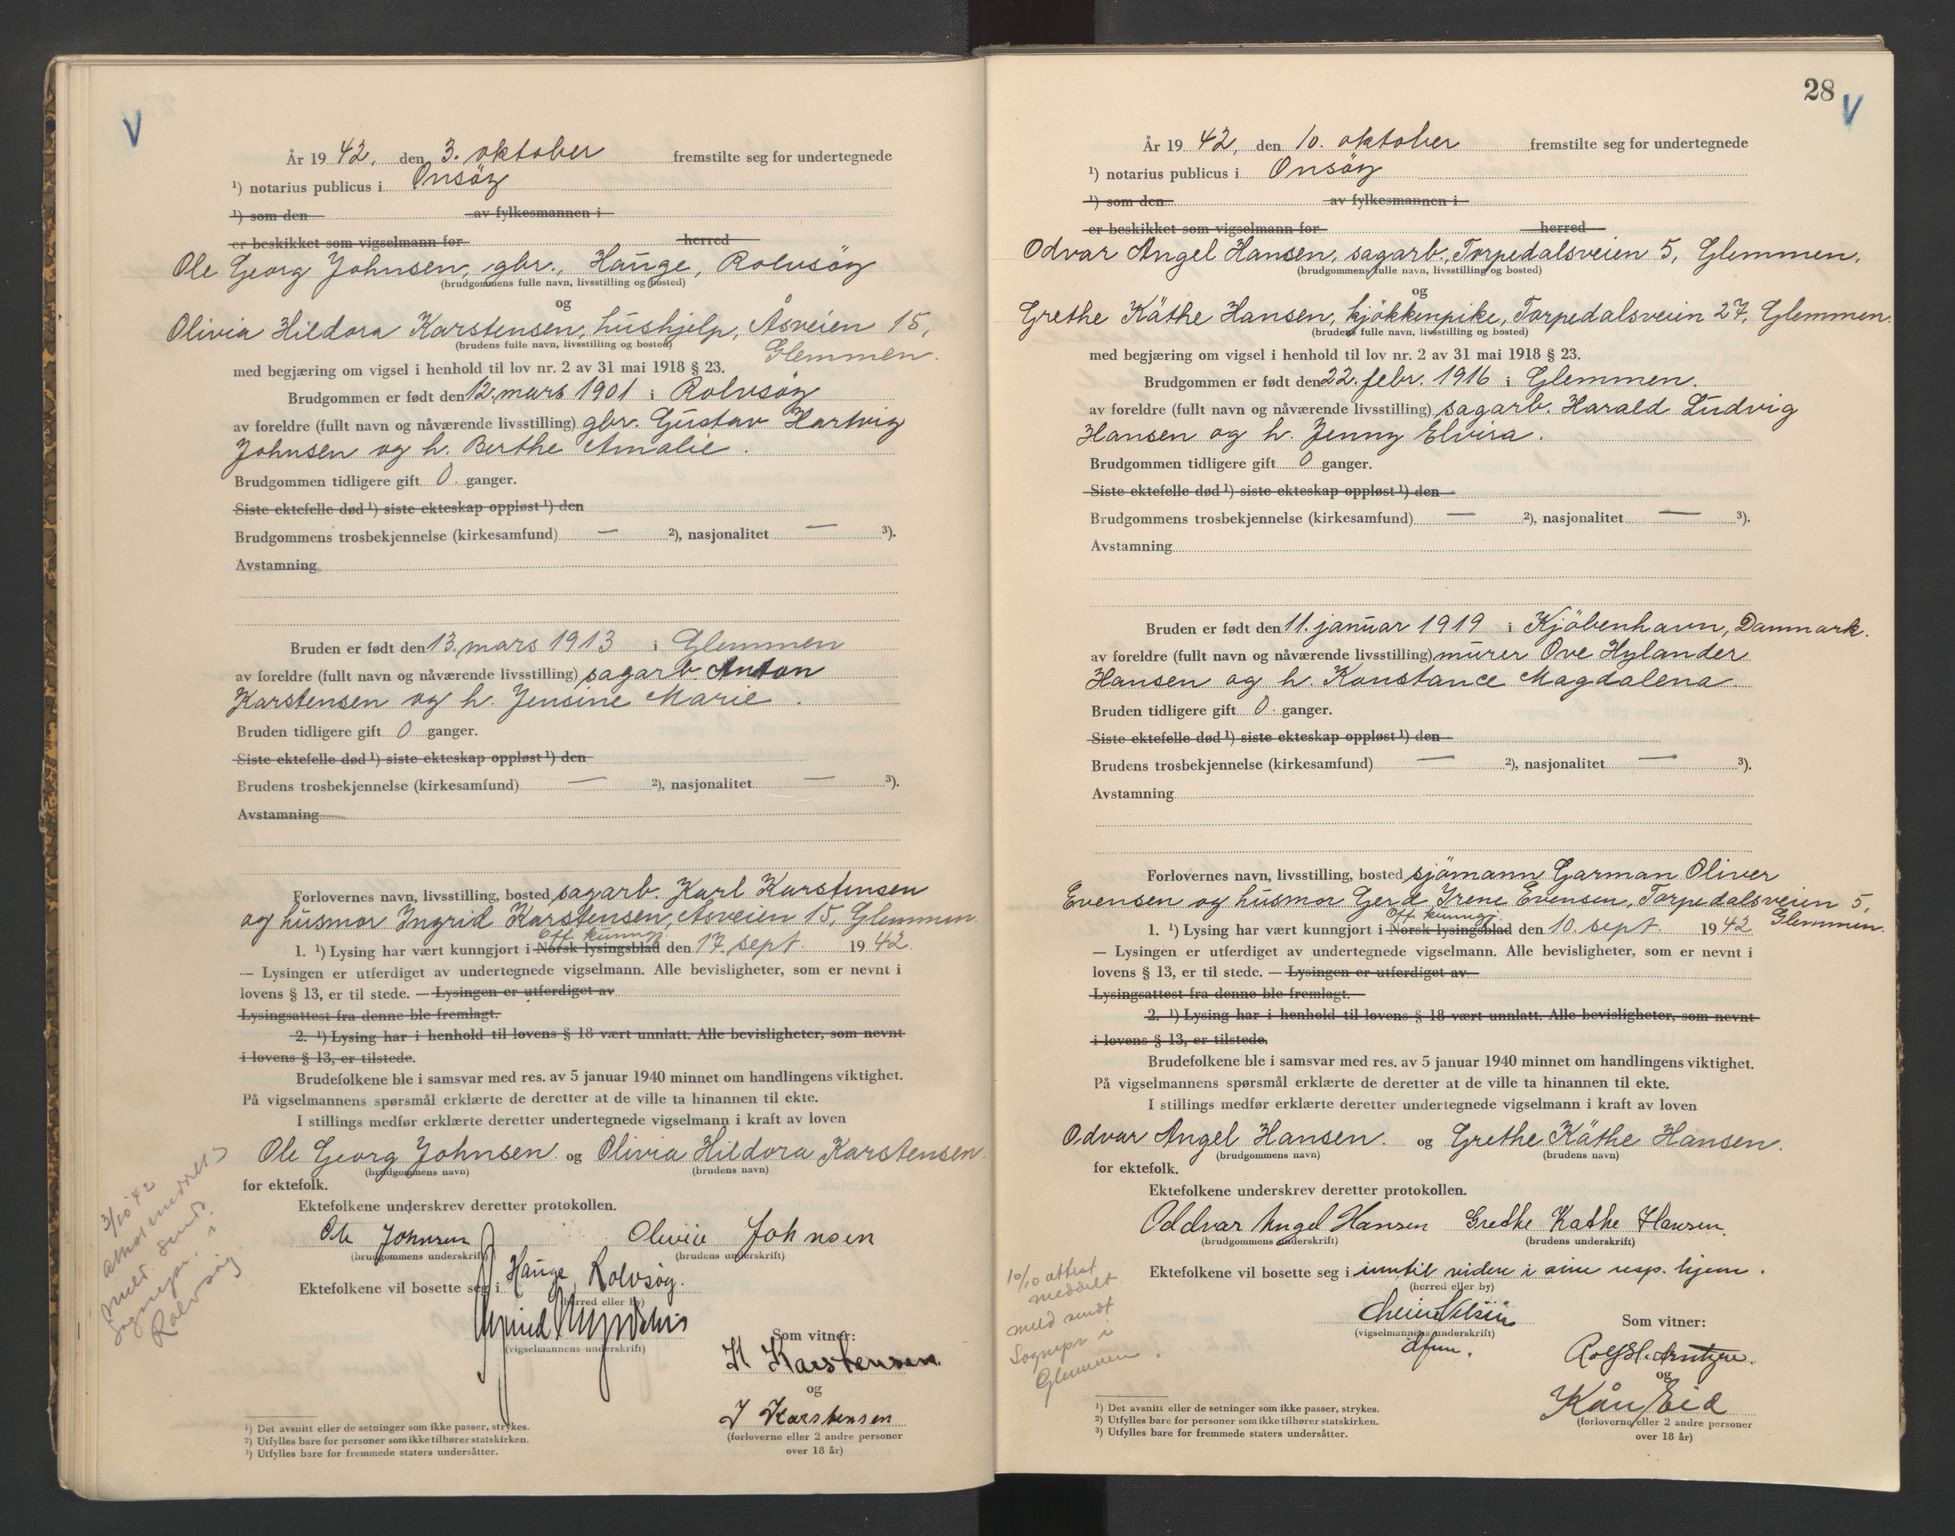 År 1942, den 3. oktober fremstilte seg for undertegnede
¹) notarius publicus i Onsöy
¹) som den av fylkesmannen i
er beskikket som vigselmann for herred
Ole Georg Johnsen, gbr., Hauge, Rolvsöy
(brudgommens fulle navn, livsstilling og bosted)
og
Olivia Hildora Karstensen, hushjelp, Åsveien 15,
(brudens fulle navn, livsstilling og bosted)
Glemmen.
med begjæring om vigsel i henhold til lov nr. 2 av 31 mai 1918 § 23.
Brudgommen er født den 12. mars 1901 i Rolvsöy
av foreldre (fullt navn og nåværende livsstilling) gbr. Gustav Hartvig
Johnsen og h. Berthe Amalie.
Brudgommen tidligere gift 0 ganger.
Siste ektefelle død ¹) siste ekteskap oppløst ¹) den
Brudgommens trosbekjennelse (kirkesamfund) — ²), nasjonalitet — ³).
Avstamning
Bruden er født den 13. mars 1913 i Glemmen
av foreldre (fullt navn og nåværende livsstilling) sagarb. Anton
Karstensen og h. Jensine Marie.
Bruden tidligere gift 0 ganger.
Siste ektefelle død ¹) siste ekteskap oppløst ¹) den
Brudens trosbekjennelse (kirkesamfund) — ²), nasjonalitet — ³).
Avstamning
Forlovernes navn, livsstilling, bosted sagarb. Karl Karstensen
og husmor Ingrid Karstensen, Åsveien 15, Glemmen.
Off. kunngj.
1. ¹) Lysing har vært kunngjort i Norsk lysingsblad den 17. sept. 1942.
— Lysingen er utferdiget av undertegnede vigselmann. Alle bevisligheter, som er nevnt i
lovens § 13, er til stede. — Lysingen er utferdiget av
Lysingsattest fra denne ble fremlagt.
2. ¹) Lysing har i henhold til lovens § 18 vært unnlatt. Alle bevisligheter, som nevnt
i lovens § 13, er tilstede.
Brudefolkene ble i samsvar med res. av 5 januar 1940 minnet om handlingens viktighet.
På vigselmannens spørsmål erklærte de deretter at de ville ta hinannen til ekte.
I stillings medfør erklærte deretter undertegnede vigselmann i kraft av loven
Ole Georg Johnsen og Olivia Hildora Karstensen.
(brudgommens navn) (brudens navn)
for ektefolk.
Ektefolkene underskrev deretter protokollen.
Ole Johnsen Olivie Johnsen
(brudgommens underskrift) (brudens underskrift)
Ektefolkene vil bosette seg i Hauge, Rolvsöy.
(herred eller by)
(vigselmannens underskrift)
Som vitner:
K Karstensen
og
I Karstensen
(forloverne eller 2 andre personer
over 18 år)
3/10 42
attest meddelt
sendt
sognepr. i
Rolvsöy.
¹) Det avsnitt eller de setninger som ikke passer, strykes.
²) Utfylles bare for personer som ikke tilhører statskirken.
³) Utfylles bare for fremmede staters undersåtter.
28
År 1942, den 10. oktober fremstilte seg for undertegnede
¹) notarius publicus i Onsöy
¹) som den av fylkesmannen i
er beskikket som vigselmann for herred
Odvar Angel Hansen, sagarb., Torpedalsveien 5, Glemmen,
(brudgommens fulle navn, livsstilling og bosted)
og
Grethe Käthe Hansen, kjökkenpike, Torpedalsveien 27, Glemmen.
(brudens fulle navn, livsstilling og bosted)
med begjæring om vigsel i henhold til lov nr. 2 av 31 mai 1918 § 23.
Brudgommen er født den 22. febr. 1916 i Glemmen.
av foreldre (fullt navn og nåværende livsstilling) sagarb. Harald Ludvig
Hansen og h. Jenny Elvira.
Brudgommen tidligere gift 0 ganger.
Siste ektefelle død ¹) siste ekteskap oppløst ¹) den
Brudgommens trosbekjennelse (kirkesamfund) — ²), nasjonalitet — ³).
Avstamning
Bruden er født den 11. januar 1919 i Kjöbenhavn, Danmark.
av foreldre (fullt navn og nåværende livsstilling) murer Ove Hylander
Hansen og h. Konstance Magdalena.
Bruden tidligere gift 0 ganger.
Siste ektefelle død ¹) siste ekteskap oppløst ¹) den
Brudens trosbekjennelse (kirkesamfund) — ²), nasjonalitet — ³).
Avstamning
Forlovernes navn, livsstilling, bosted sjömann Garman Oliver
Evensen og husmor Gerd Irene Evensen, Torpedalsveien 5,
Glemmen.
Off. kunngj.
1. ¹) Lysing har vært kunngjort i Norsk lysingsblad den 10. sept. 1942
— Lysingen er utferdiget av undertegnede vigselmann. Alle bevisligheter, som er nevnt i
lovens § 13, er til stede. — Lysingen er utferdiget av
Lysingsattest fra denne ble fremlagt.
2. ¹) Lysing har i henhold til lovens § 18 vært unnlatt. Alle bevisligheter, som nevnt
i lovens § 13, er tilstede.
Brudefolkene ble i samsvar med res. av 5 januar 1940 minnet om handlingens viktighet.
På vigselmannens spørsmål erklærte de deretter at de ville ta hinannen til ekte.
I stillings medfør erklærte deretter undertegnede vigselmann i kraft av loven
Odvar Angel Hansen. og Grethe Käthe Hansen.
(brudgommens navn) (brudens navn)
for ektefolk.
Ektefolkene underskrev deretter protokollen.
Oddvar Angel Hansen Grethe Kathe Hansen.
(brudgommens underskrift) (brudens underskrift)
Ektefolkene vil bosette seg i inntil videre i sine resp. hjem.
(herred eller by)
(vigselmannens underskrift)
dfm.
Som vitner:
Rolf H. Arntzen.
og
Kåre Eid
(forloverne eller 2 andre personer
over 18 år)
10/10 attest
meddelt
meld sendt
Sognepr i
Glemmen.
¹) Det avsnitt eller de setninger som ikke passer, strykes.
²) Utfylles bare for personer som ikke tilhører statskirken.
³) Utfylles bare for fremmede staters undersåtter.